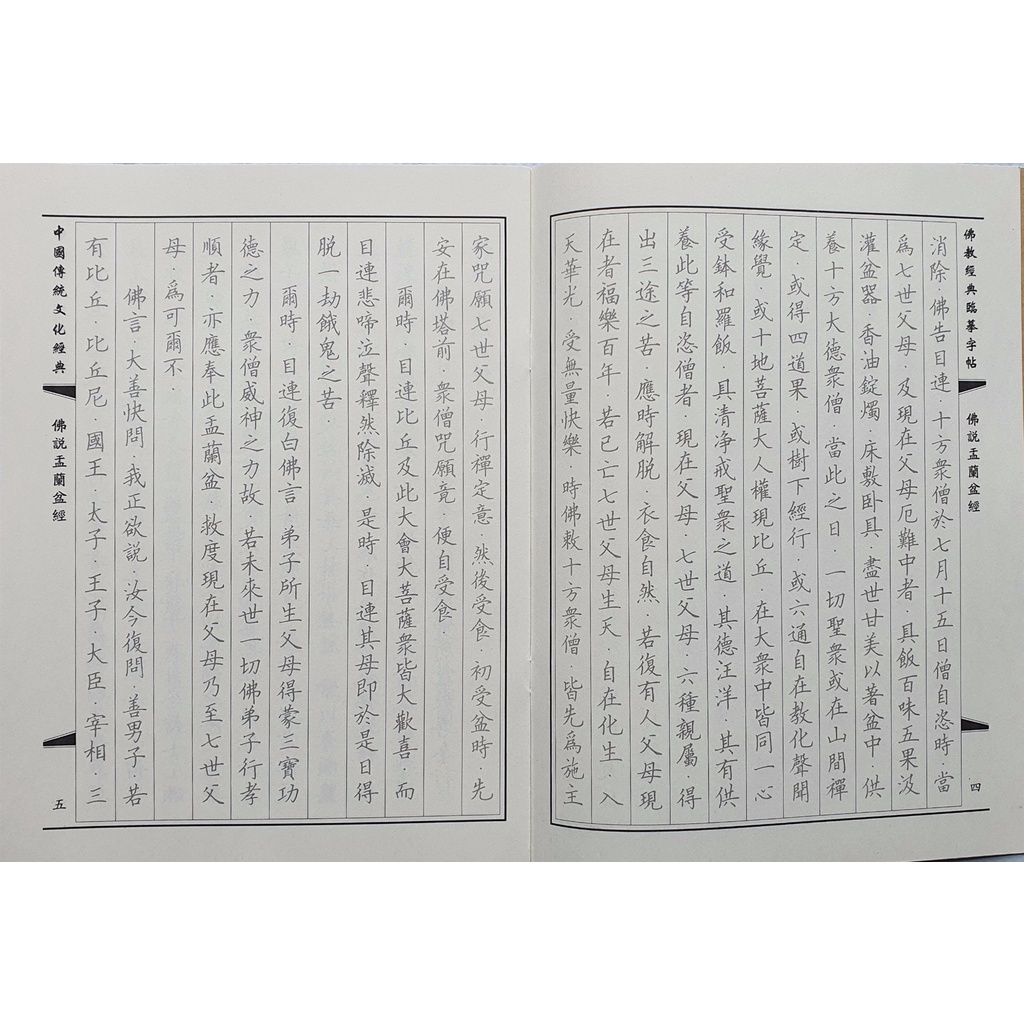 佛教經典臨摹字帖
佛説盂蘭盆經
四
消除·佛告目連·十方衆僧於七月十五日僧自恣時·當
爲七世父母·及現在父母厄難中者·具飯百味五果汲
灌盆器·香油錠燭·床敷卧具·盡世甘美以著盆中·供
養十方大德衆僧·當此之日·一切聖衆或在山間禪
定·或得四道果·或樹下經行·或六通自在教化聲聞
緣覺·或十地菩薩大人權現比丘·在大衆中皆同一心
受鉢和羅飯·具清净戒聖衆之道·其德汪洋·其有供
養此等自恣僧者·現在父母·七世父母·六種親屬·得
出三途之苦·應時解脱·衣食自然·若復有人父母現
在者福樂百年·若已亡七世父母生天·自在化生·入
天華光·受無量快樂·時佛敕十方衆僧·皆先爲施主
家咒願七世父母·行禪定意·然後受食·初受盆時·先
安在佛塔前·衆僧咒願竟·便自受食·
爾時·目連比丘及此大會大菩薩衆皆大歡喜·而
目連悲啼泣聲釋然除滅·是時·目連其母即於是日得
脱一劫餓鬼之苦·
爾時·目連復白佛言·弟子所生父母得蒙三寶功
德之力·衆僧威神之力故·若未來世一切佛弟子行孝
順者·亦應奉此盂蘭盆·救度現在父母乃至七世父
母·爲可爾不·
佛言·大善快問·我正欲説·汝今復問·善男子·若
有比丘·比丘尼·國王·太子·王子·大臣·宰相·三
中國傳統文化經典
佛説盂蘭盆經
五